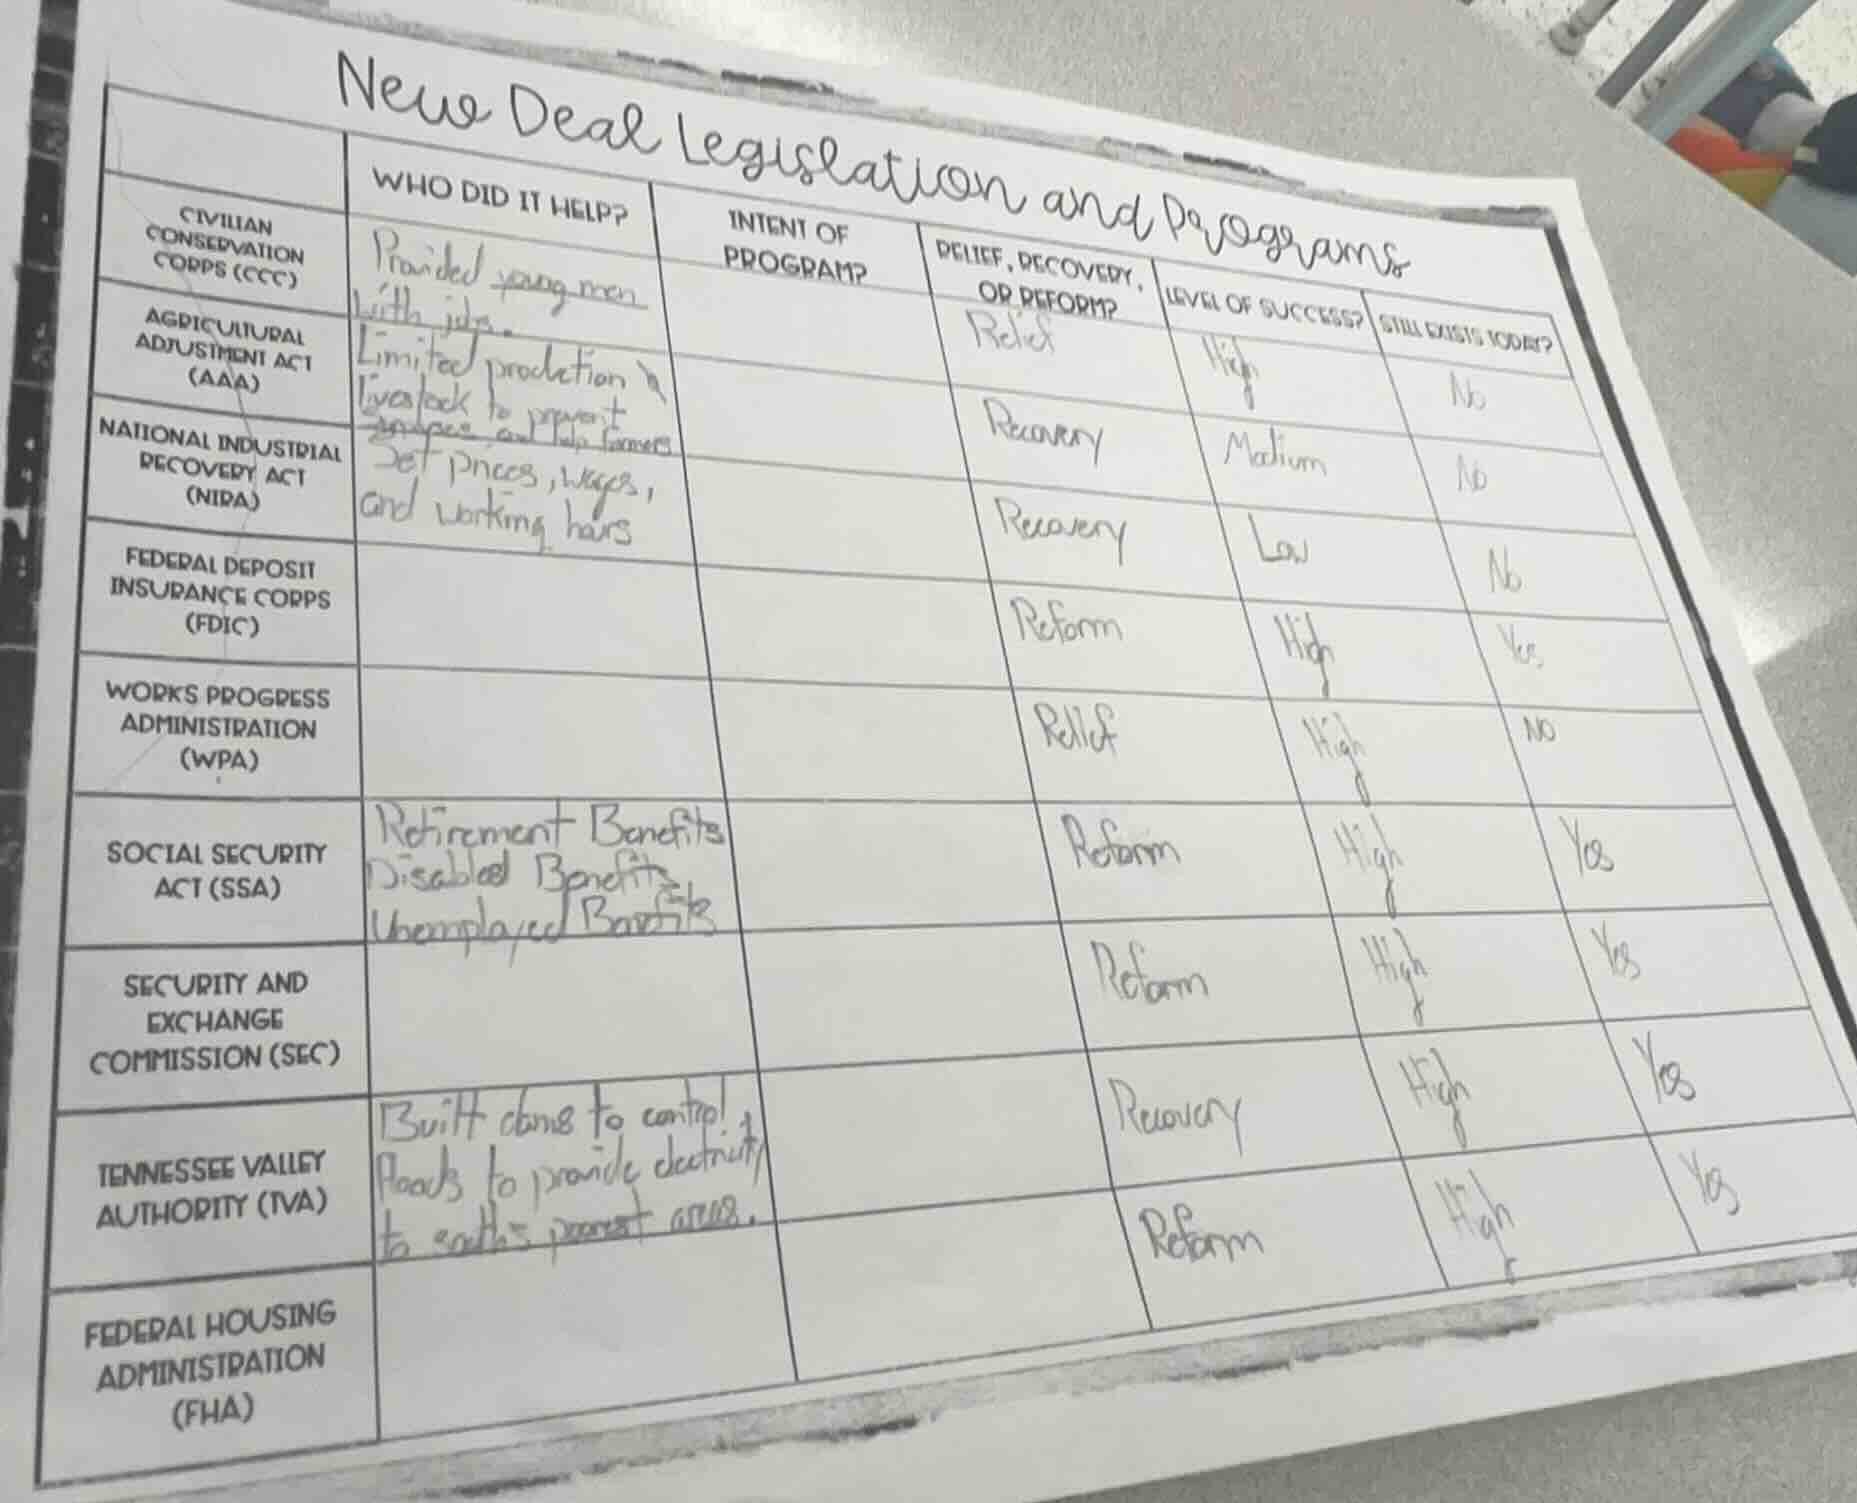 New Deal Legislation and Programs
WHO DID IT HELP?
INTENT OF
PROGRAM?
RELIEF, RECOVERY,
OR REFORM?
LEVEL OF SUCCESS?
STILL EXISTS TODAY?
CIVILIAN
CONSERVATION
CORPS (CCC)
Provided young men
with jobs.
Relief
High
No
AGRICULTURAL
ADJUSTMENT ACT
(AAA)
Limited production
livestock to prevent
and help farmers
Recovery
Medium
No
NATIONAL INDUSTRIAL
RECOVERY ACT
(NIRA)
Set prices, wages,
and working hours
Recovery
Low
No
FEDERAL DEPOSIT
INSURANCE CORPS
(FDIC)
Reform
High
Yes
WORKS PROGRESS
ADMINISTRATION
(WPA)
Relief
High
NO
SOCIAL SECURITY
ACT (SSA)
Retirement Benefits
Disabled Benefits
Unemployed Benefits
Reform
High
Yes
SECURITY AND
EXCHANGE
COMMISSION (SEC)
Reform
High
Yes
TENNESSEE VALLEY
AUTHORITY (TVA)
Built dams to control
floods to provide electricity
to south's poorest areas.
Recovery
High
Yes
FEDERAL HOUSING
ADMINISTRATION
(FHA)
Reform
High
Yes